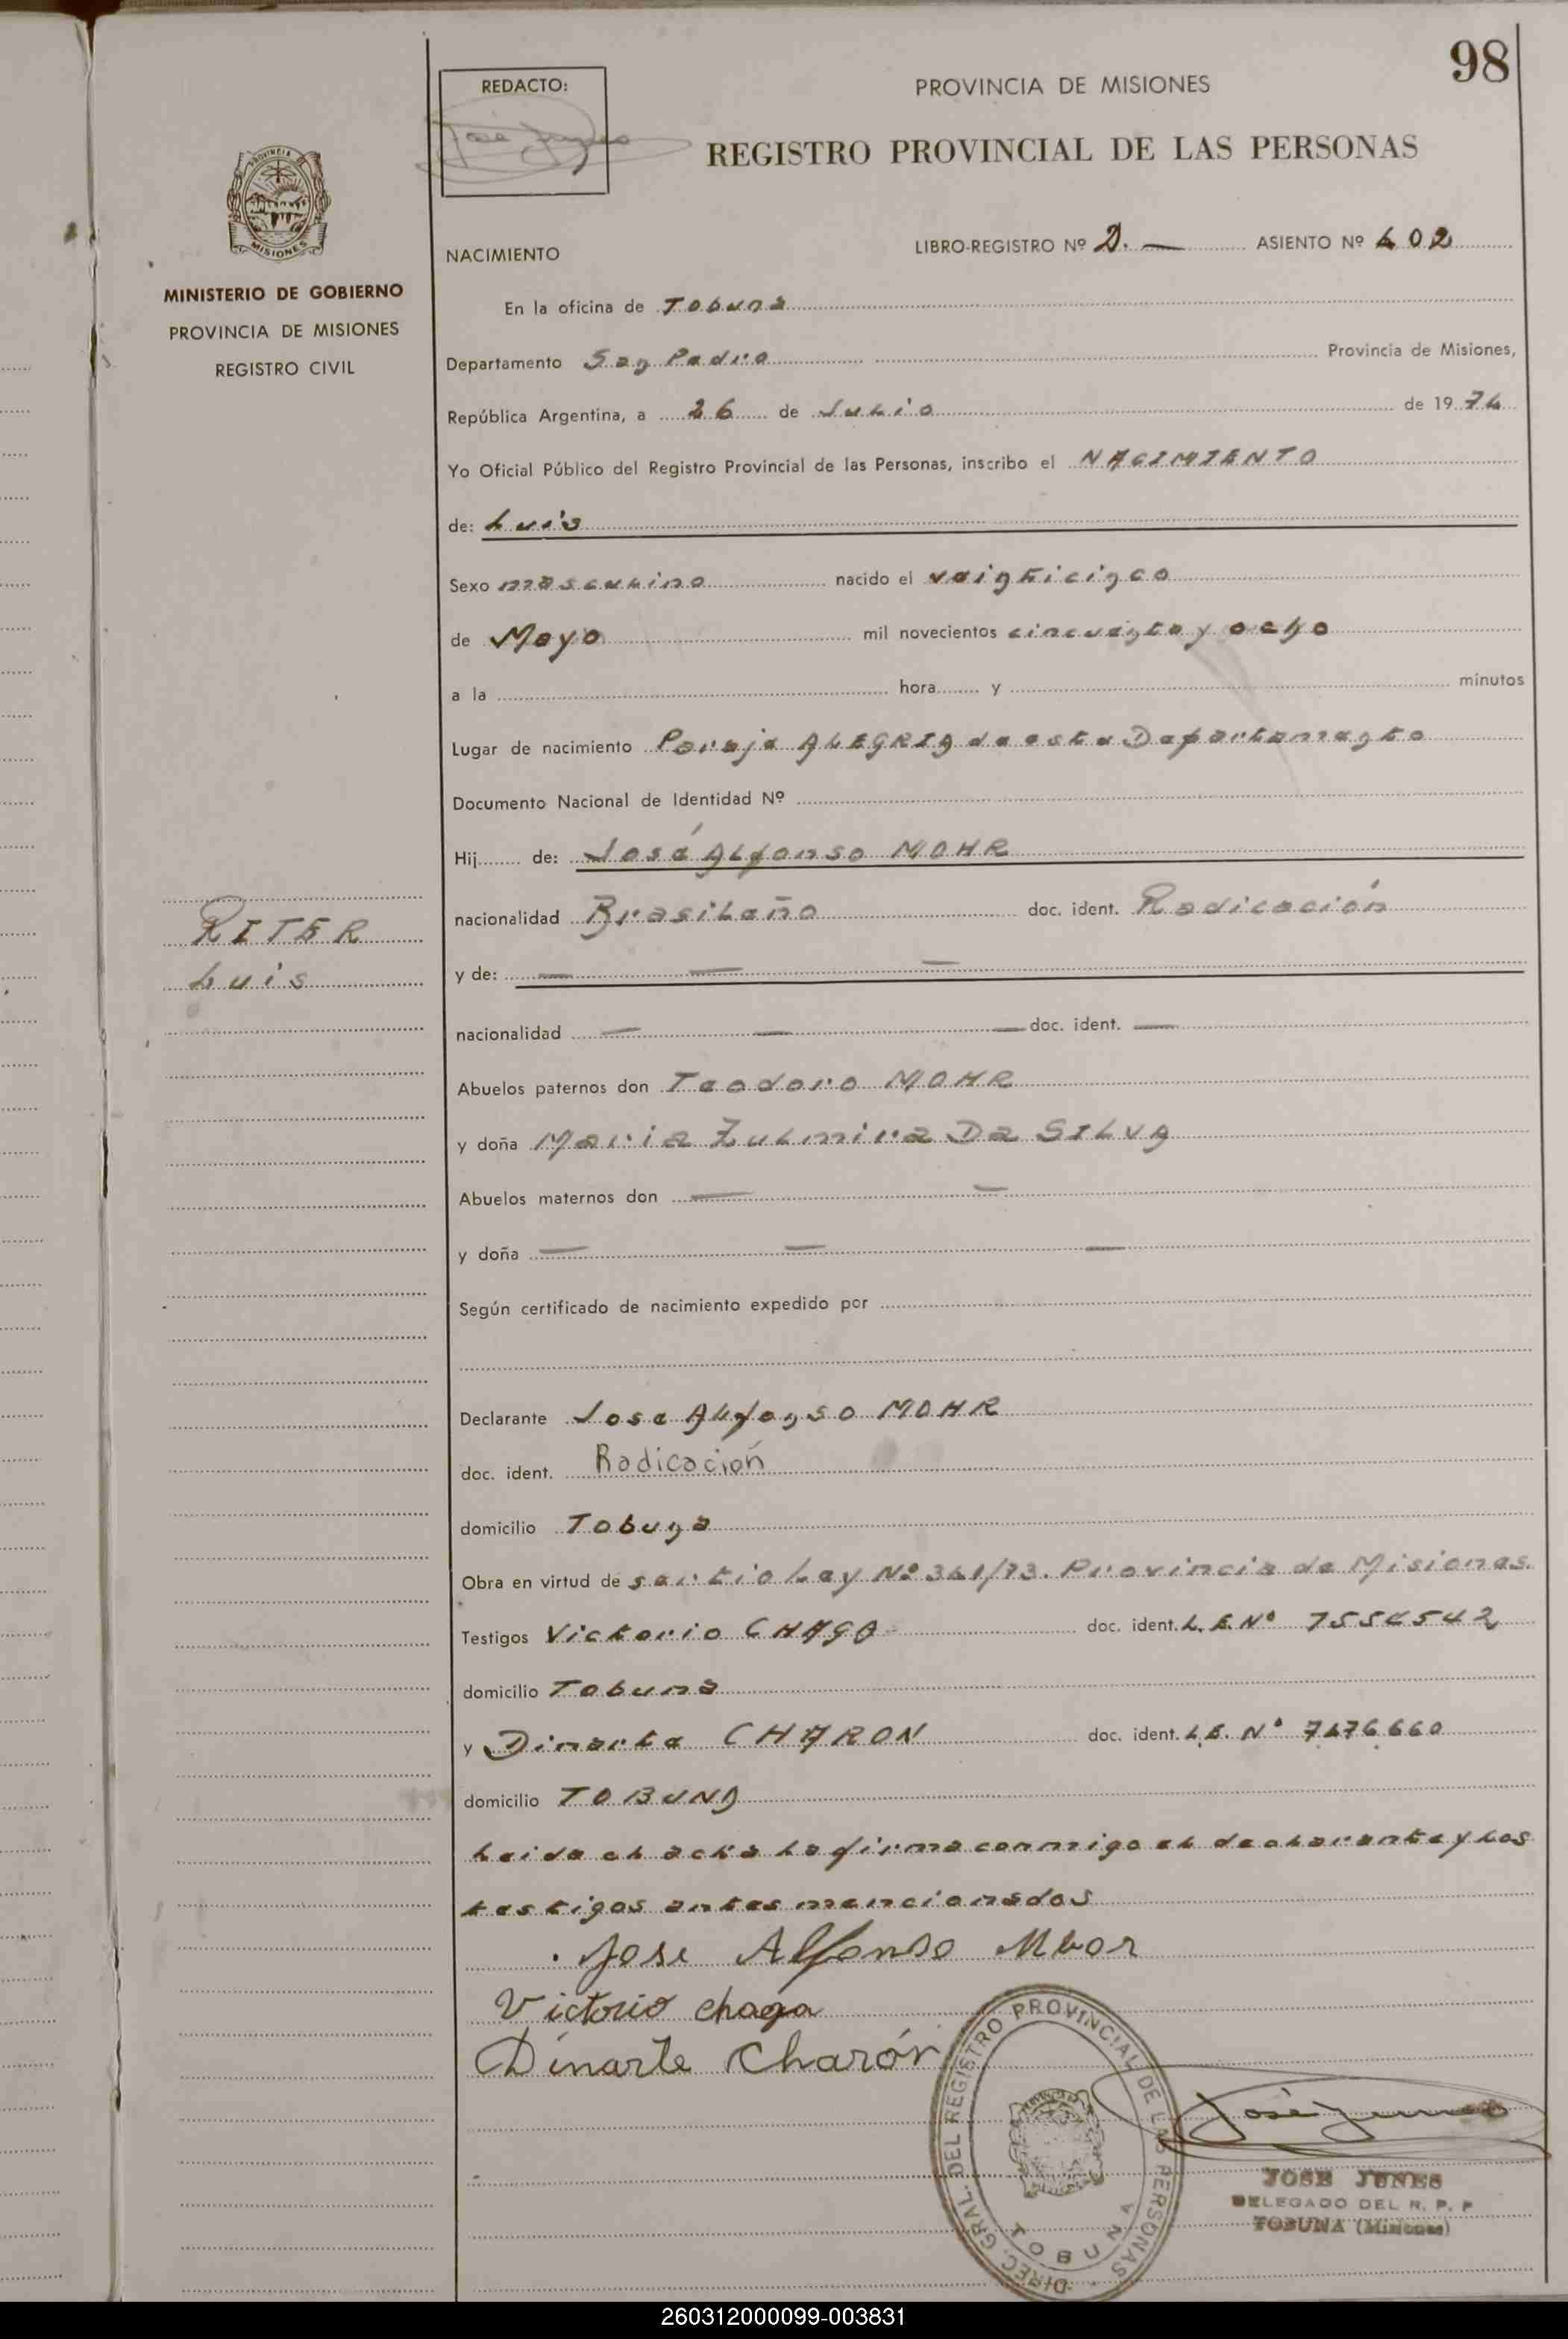 98
REDACTO:
PROVINCIA DE MISIONES
REGISTRO PROVINCIAL DE LAS PERSONAS
PROVINCIA DE
MISIONES
MINISTERIO DE GOBIERNO
PROVINCIA DE MISIONES
REGISTRO CIVIL
NACIMIENTO
LIBRO-REGISTRO Nº D. — ASIENTO Nº 402
En la oficina de Tobuna
Departamento San Pedro Provincia de Misiones,
República Argentina, a 26 de Julio de 1974
Yo Oficial Público del Registro Provincial de las Personas, inscribo el NACIMIENTO
de: Luis
Sexo masculino nacido el veinticinco
de Mayo mil novecientos cincuenta y ocho
a la hora y minutos
Lugar de nacimiento Paraje ALEGRIA de este Departamento
Documento Nacional de Identidad Nº
Hij de: José Alfonso MOHR
nacionalidad Brasileño doc. ident. Radicación
RITER
Luis
y de: — — —
nacionalidad — — — doc. ident. —
Abuelos paternos don Teodoro MOHR
y doña Maria Zulmira Da SILVA
Abuelos maternos don — —
y doña — — —
Según certificado de nacimiento expedido por
Declarante Jose Alfonso MOHR
doc. ident. Radicación
domicilio Tobuna
Obra en virtud de Ley Nº 341/73. Provincia de Misiones.
Testigos Victorio CHAGA doc. ident. L.E. Nº 7554542
domicilio Tobuna
y Dinarte CHARON doc. ident. L.E. Nº 7476.660
domicilio TOBUNA
Leida el acta la firma conmigo el declarante y los
testigos antes mencionados
Jose Alfonso Mhor
Victorio chaga
Dinarte Charón
DIREC. GRAL. DEL REGISTRO PROVINCIAL DE LAS PERSONAS
TOBUNA
José Junes
JOSE JUNES
DELEGADO DEL R. P. P
TOBUNA (Misiones)
260312000099-003831